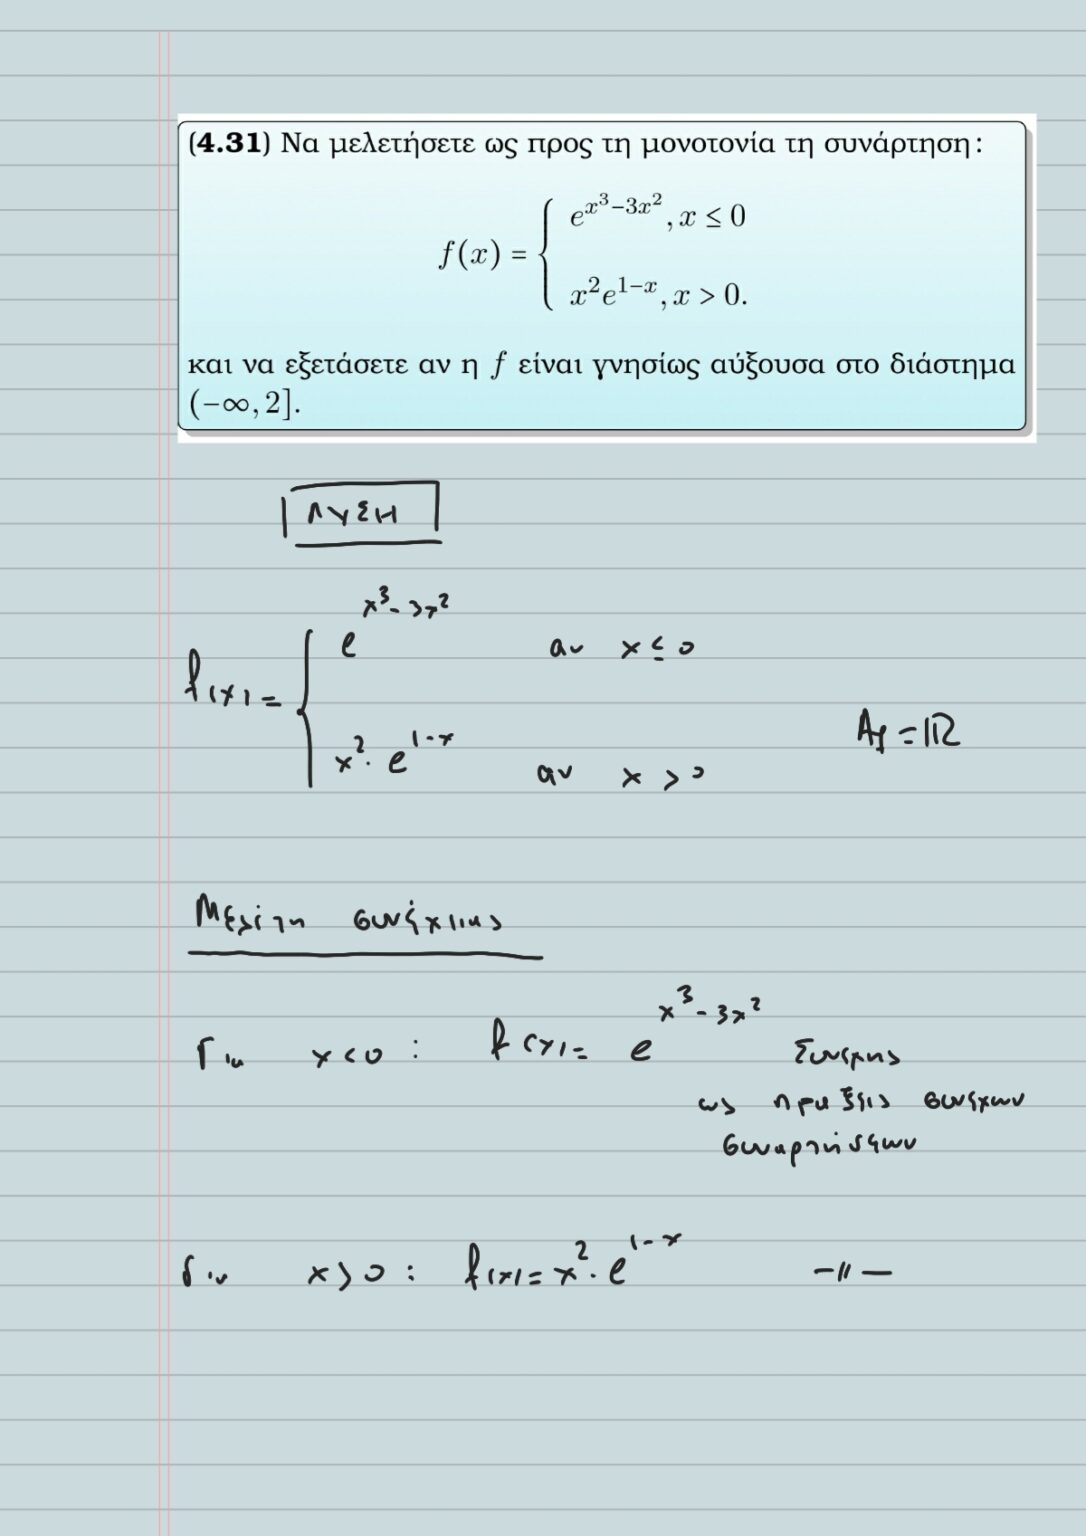 (4.31) Να μελετήσετε ως προς τη μονοτονία τη συνάρτηση:
f(x) = { e^{x^3-3x^2}, x ≤ 0
x^2e^{1-x}, x > 0.
και να εξετάσετε αν η f είναι γνησίως αύξουσα στο διάστημα
(-∞, 2].
ΛΥΣΗ
f(x) = { e^{x^3-3x^2} αν x ≤ 0
x^2 · e^{1-x} αν x > 0
A_f = ℝ
Μελέτη συνέχειας
Για x < 0 : f(x) = e^{x^3-3x^2} Συνεχης
ως πράξεις συνεχων
συναρτήσεων
Για x > 0 : f(x) = x^2 · e^{1-x} -//-